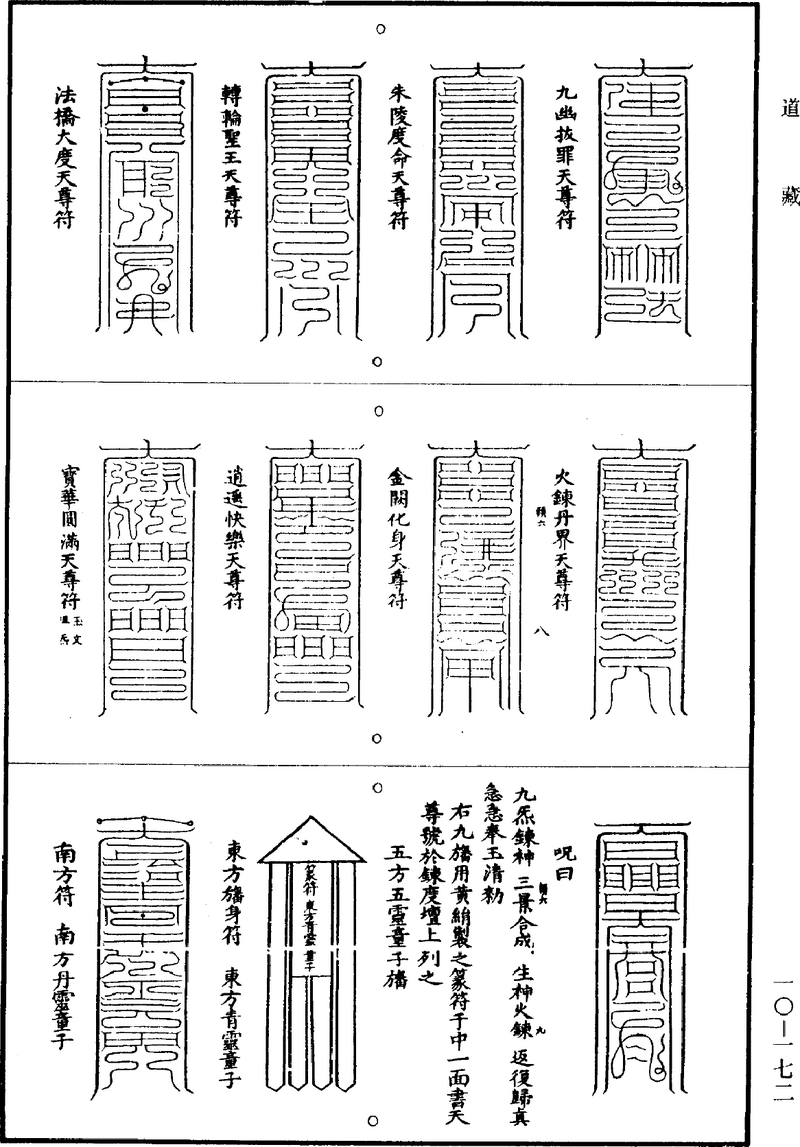 道藏
九幽拔罪天尊符
朱陵度命天尊符
轉輪聖王天尊符
法橋大度天尊符
火鍊丹界天尊符
八
金闕化身天尊符
逍遥快樂天尊符
寶華圓滿天尊符
呪曰
九炁鍊神 三景合成 生神火鍊 返復歸真
急急奉玉清勑
右九旛用黄絹製之篆符于中一面書天
尊號於鍊度壇上列之
五方五靈童子旛
篆符 東方青靈童子
東方旛身符 東方青靈童子
南方符 南方丹靈童子
一〇—一七二